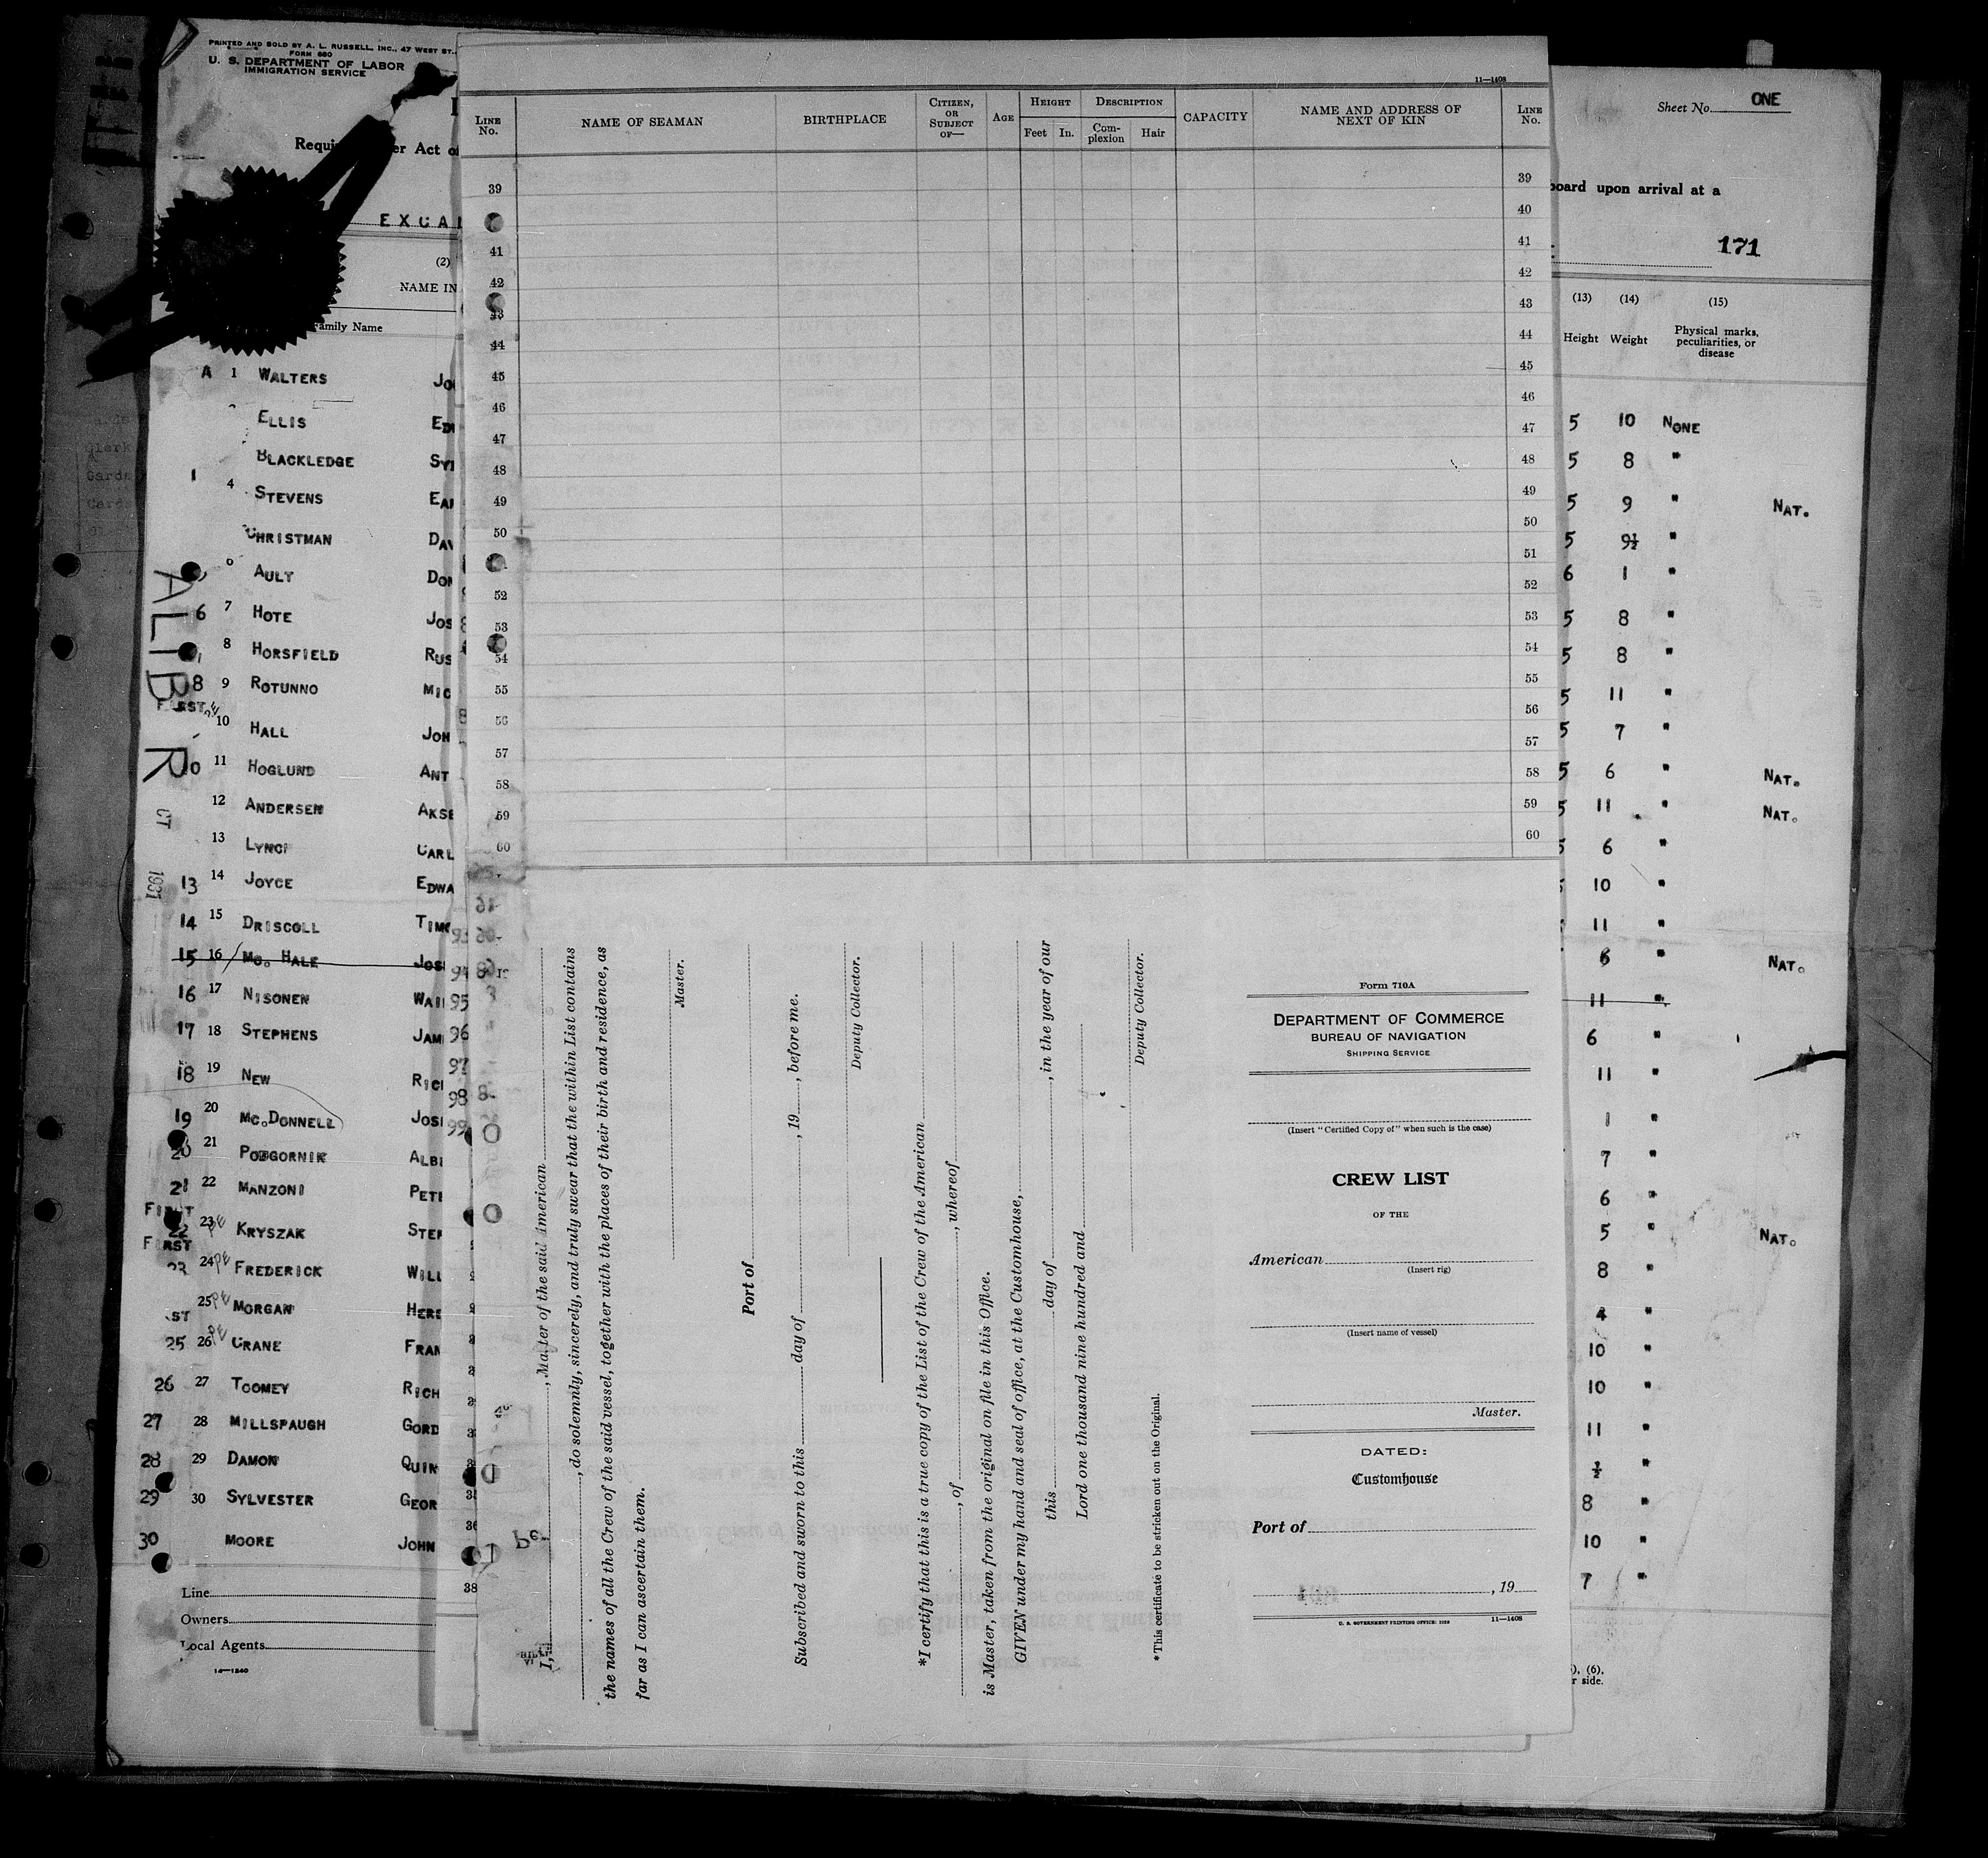 PRINTED AND SOLD BY A. L. RUSSELL, INC., 47 WEST ST.,
FORM 680
U. S. DEPARTMENT OF LABOR
IMMIGRATION SERVICE
er Act o
EXCA
(2)
NAME IN
amily Name
A 1 WALTERS JO
ELLIS ED
BLACKLEDGE SY
1
4 STEVENS EA
CHRISTMAN DA
AULT DON
6 7 HOTE JOS
8 HORSFIELD RUS
8 9 ROTUNNO MIC
FIRST PE
10 HALL JOH
11 HOGLUND ANT
12 ANDERSEN AKSE
13 LYNCH CARL
13 14 JOYCE EDWA
14 15 DRISCOLL TIMO
15 16 MC. HALE JOS
16 17 NISONEN WAI
17 18 STEPHENS JAM
18 19 NEW RICH
19 20 MC.DONNELL JOS
20 21 PODGORNIK ALB
21 22 MANZONI PETE
FIRST
22 23 PE KRYSZAK STEF
FIRST
23 24 PE FREDERICK WILL
25 PE MORGAN HERE
ST
25 26 PE CRANE FRAN
26 27 TOOMEY RICH
27 28 MILLSPAUGH GORD
28 29 DAMON QUIN
29 30 SYLVESTER GEOR
30 MOORE JOHN
Line
Owners
Local Agents
14—1240
ALIB R
CT 1931
93
94
95
96
97
98
99
36
38
11—1408
LINE No.
NAME OF SEAMAN
BIRTHPLACE
CITIZEN, OR SUBJECT OF—
AGE
HEIGHT
Feet In.
DESCRIPTION
Com-plexion Hair
CAPACITY
NAME AND ADDRESS OF NEXT OF KIN
LINE No.
39 39
40
41 41
42 42
43 43
44 44
45 45
46 46
47 47
48 48
49 49
50 50
51
52 52
53 53
54 54
55 55
56 56
57 57
58 58
59 59
60 60
I, , Master of the said American
, do solemnly, sincerely, and truly swear that the within List contains
the names of all the Crew of the said vessel, together with the places of their birth and residence, as
far as I can ascertain them.
Master.
Port of
Subscribed and sworn to this day of , 19 , before me.
Deputy Collector.
*I certify that this is a true copy of the List of the Crew of the American
, of , whereof
is Master, taken from the original on file in this Office.
GIVEN under my hand and seal of office, at the Customhouse,
this day of , in the year of our
Lord one thousand nine hundred and
Deputy Collector.
*This certificate to be stricken out on the Original.
Form 710A
DEPARTMENT OF COMMERCE
BUREAU OF NAVIGATION
SHIPPING SERVICE
(Insert "Certified Copy of" when such is the case)
CREW LIST
OF THE
American
(Insert rig)
(Insert name of vessel)
Master.
DATED:
Customhouse
Port of
, 19
U. S. GOVERNMENT PRINTING OFFICE: 1928 11—1408
Sheet No. ONE
board upon arrival at a
171
(13) (14) (15)
Height Weight Physical marks, peculiarities, or disease
5 10 NONE
5 8 "
5 9 " NAT.
5 9½ "
6 1 "
5 8 "
5 8 "
5 11 "
5 7 "
5 6 " NAT.
5 11 " NAT.
5 6 "
10 "
11 "
6 " NAT.
11 "
6 "
11 "
1 "
7 "
6 "
5 " NAT.
8 "
4 "
10 "
10 "
11 "
½ "
8 "
10 "
7 "
), (6),
r side.